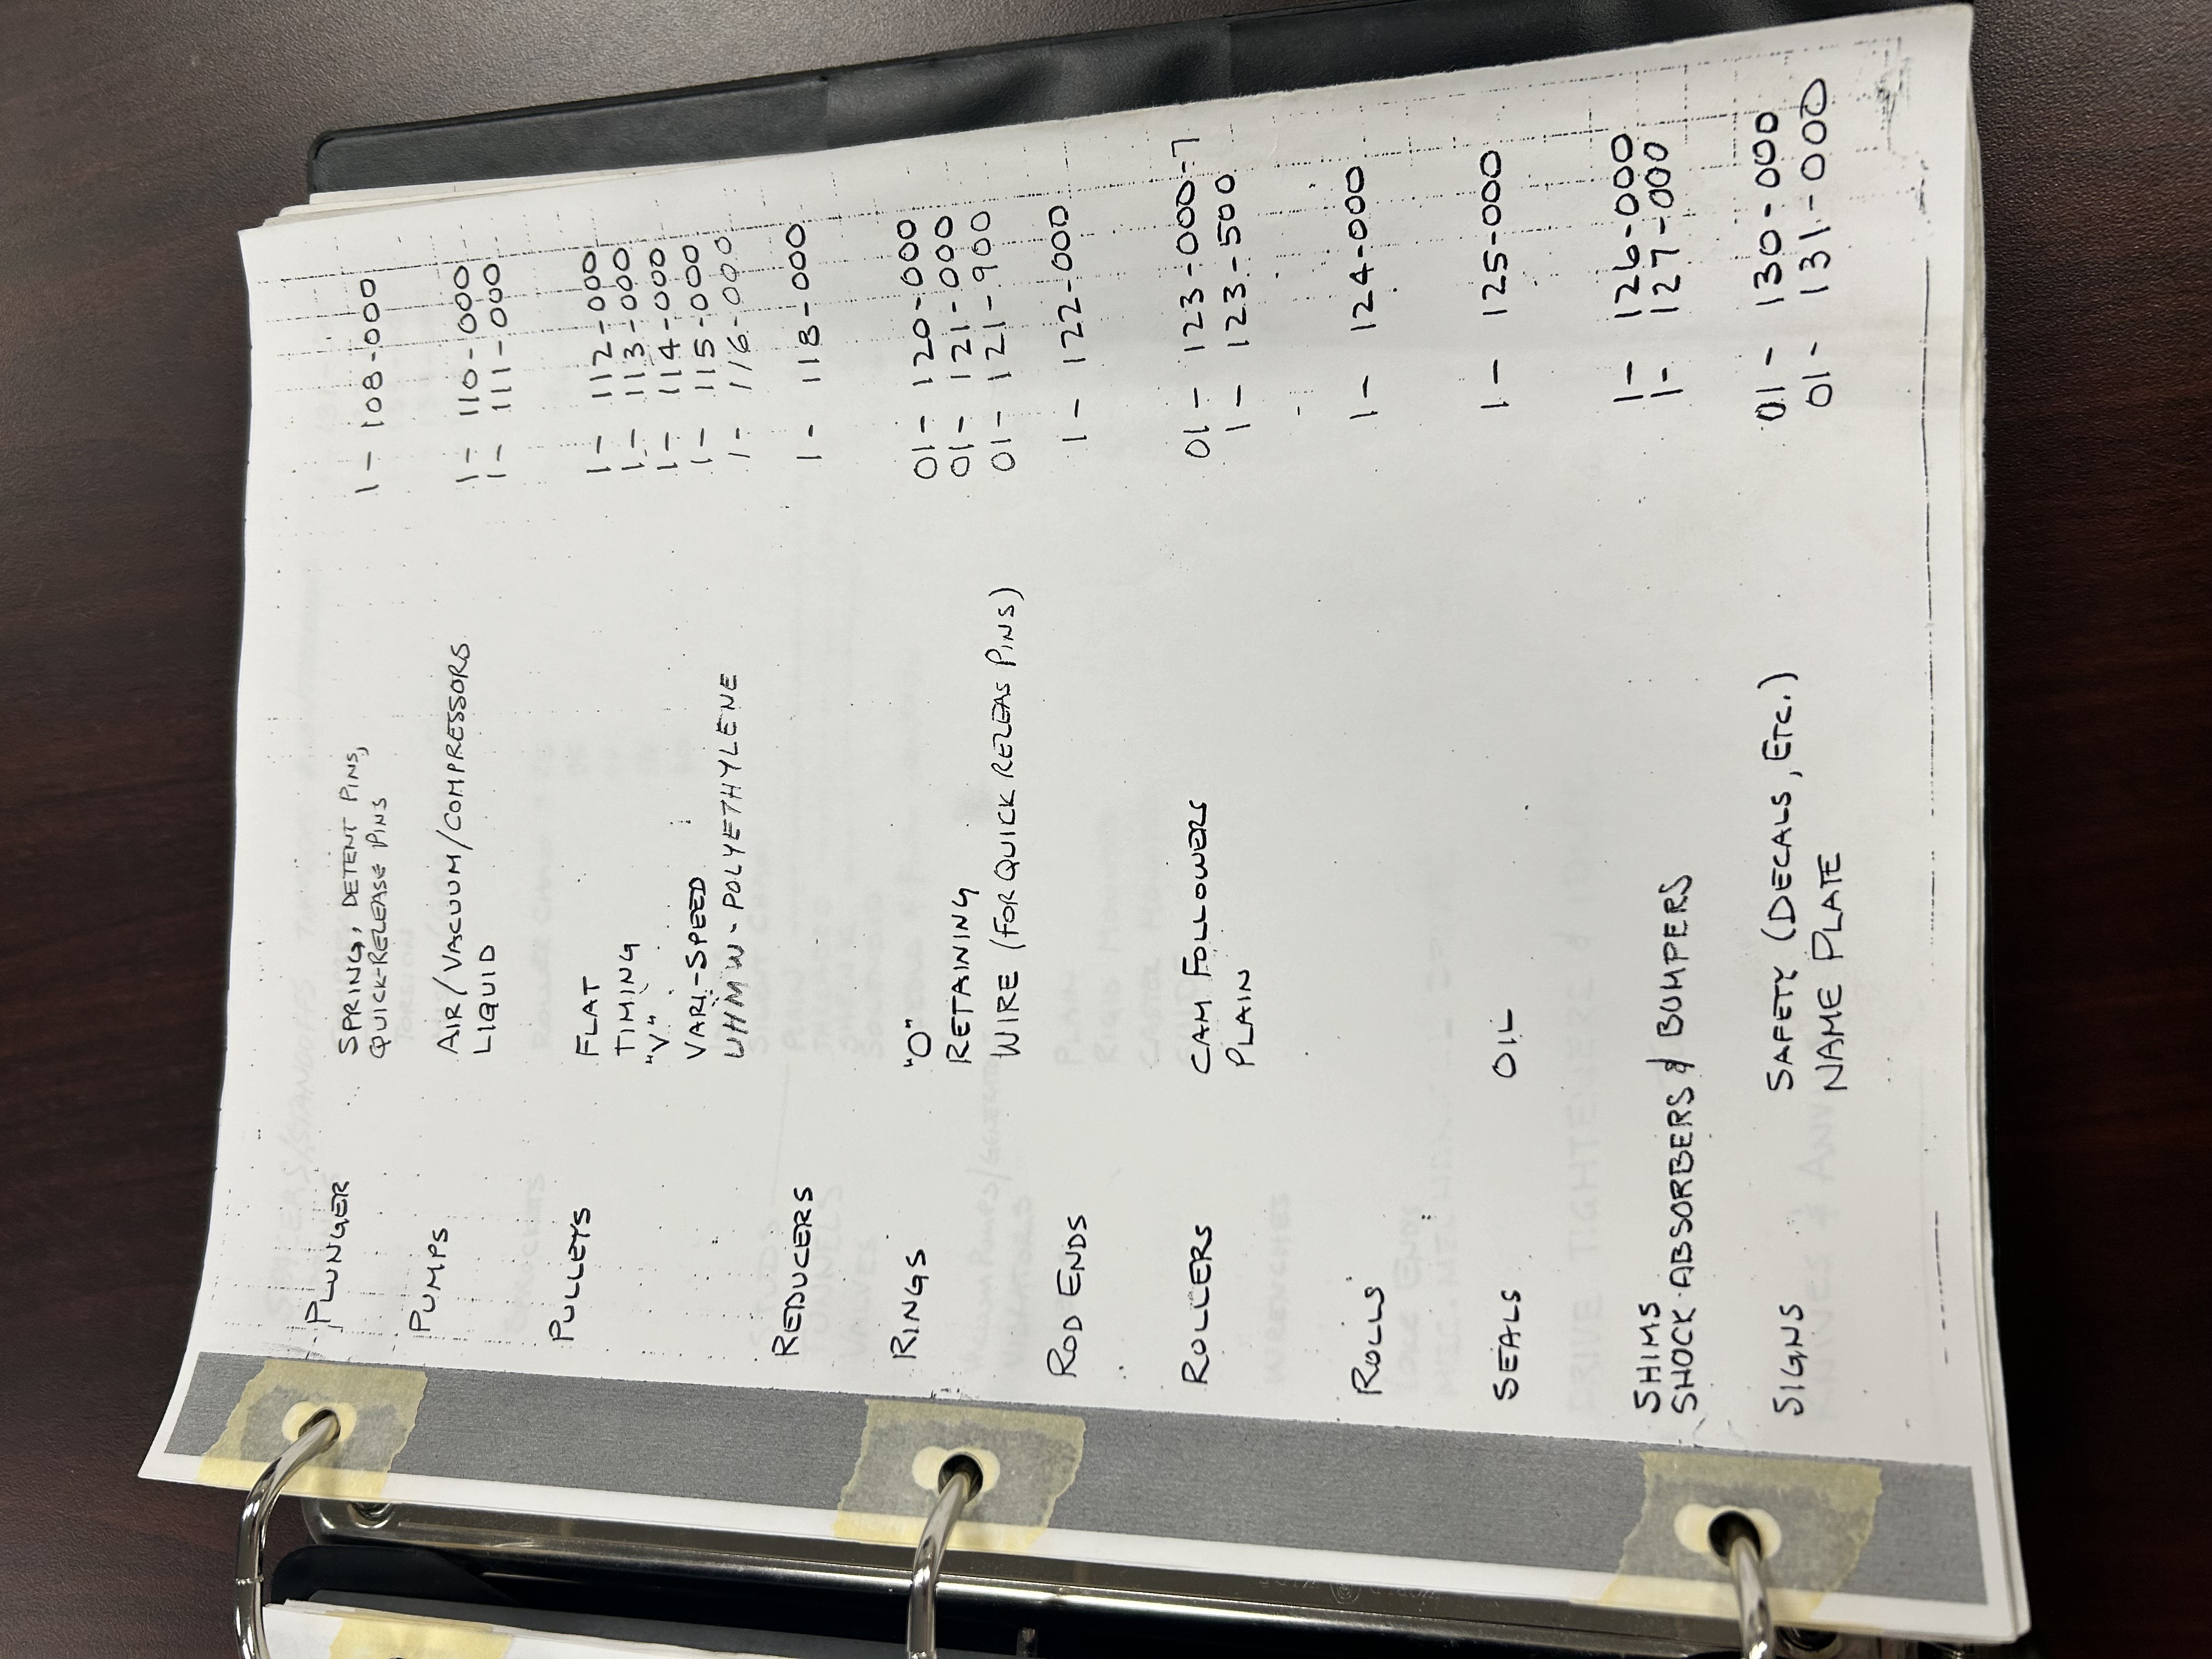 PLUNGER SPRING, DETENT PINS,
QUICK-RELEASE PINS 1 - 108-000
PUMPS AIR/VACUUM/COMPRESSORS 1 - 110-000
LIQUID 1 - 111-000
PULLEYS FLAT 1 - 112-000
TIMING 1 - 113-000
"V" 1 - 114-000
VARI-SPEED 1 - 115-000
UHMW - POLYETHYLENE 1 - 116-000
REDUCERS 1 - 118-000
RINGS "O" 01 - 120-000
RETAINING 01 - 121-000
WIRE (FOR QUICK RELEAS PINS) 01 - 121-900
ROD ENDS 1 - 122-000
ROLLERS CAM FOLLOWERS 01 - 123-000-7
PLAIN 1 - 123-500
ROLLS 1 - 124-000
SEALS OIL 1 - 125-000
SHIMS 1 - 126-000
SHOCK ABSORBERS & BUMPERS 1 - 127-000
SIGNS SAFETY (DECALS, ETC.) 01 - 130-000
NAME PLATE 01 - 131-000